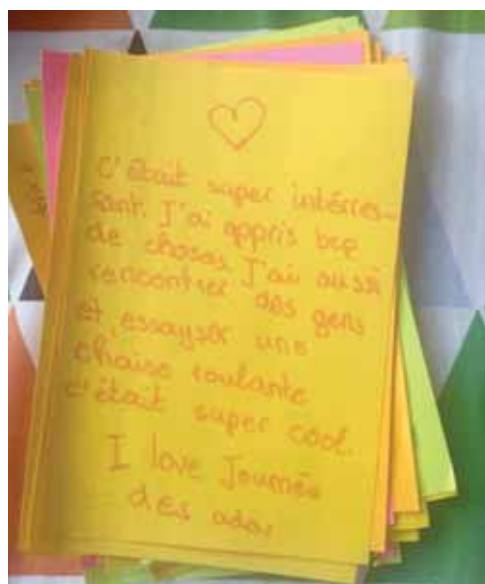 C'était super intérres-
sant. J'ai appris bcp
de choses. J'ai aussi
rencontrer des gens
et essayser une
chaise roulante
c'était super cool.
I love Journée
des ados